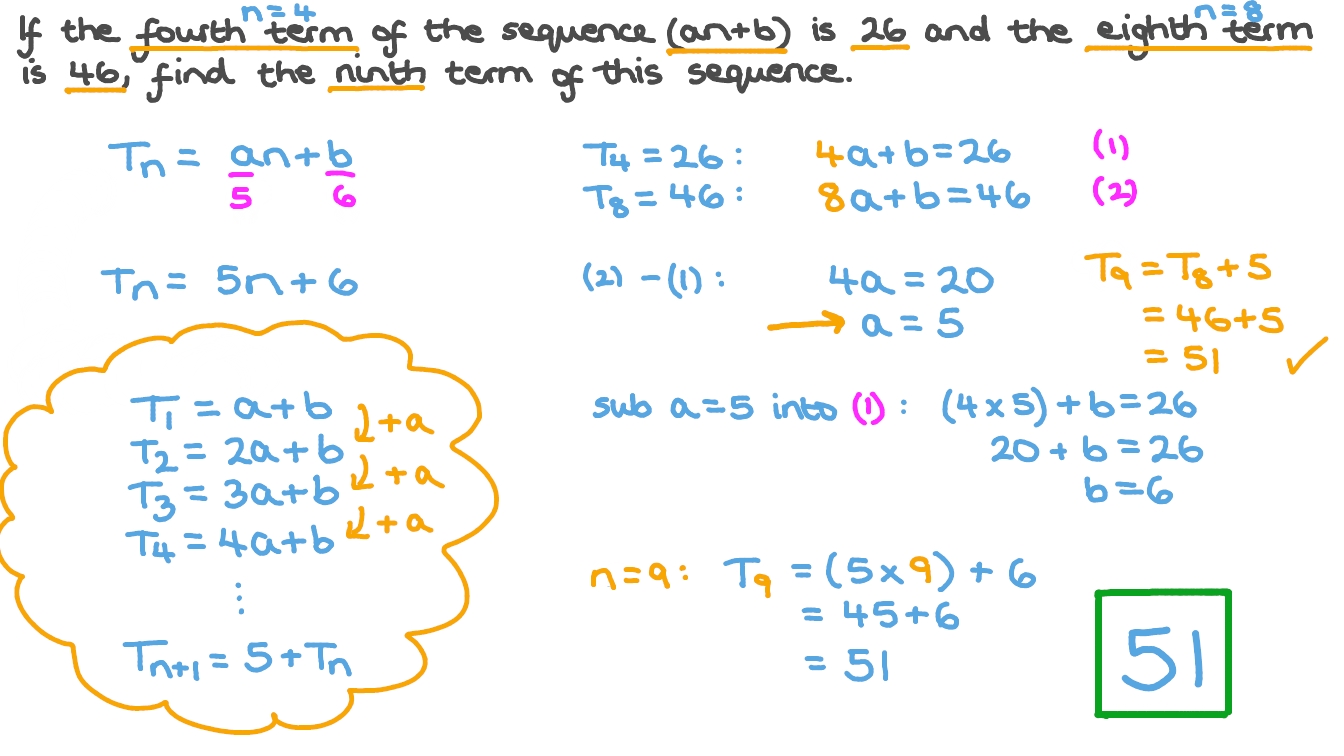 n=4
n=8
If the fourth term of the sequence (an+b) is 26 and the eighth term
is 46, find the ninth term of this sequence.
Tₙ = an+b
5 6
Tₙ = 5n+6
T₁ = a+b
↓+a
T₂ = 2a+b
↓+a
T₃ = 3a+b
↓+a
T₄ = 4a+b
⋮
Tₙ₊₁ = 5+Tₙ
T₄ = 26: 4a+b=26 (1)
T₈ = 46: 8a+b=46 (2)
(2) -(1): 4a = 20
→ a = 5
T₉ = T₈+5
= 46+5
= 51 ✓
sub a=5 into (1): (4×5)+b=26
20+b=26
b=6
n=9: T₉ = (5×9)+6
= 45+6
= 51
51